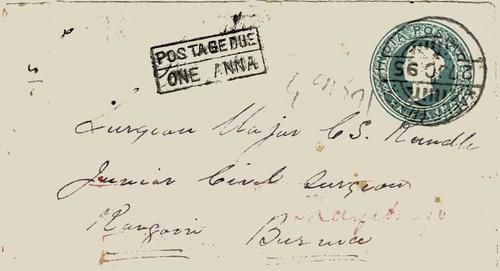 POSTAGE DUE
ONE ANNA
INDIA POSTAGE
95
Surgeon Major C S. Rundle
Junior Civil Surgeon
Rangoon Burma